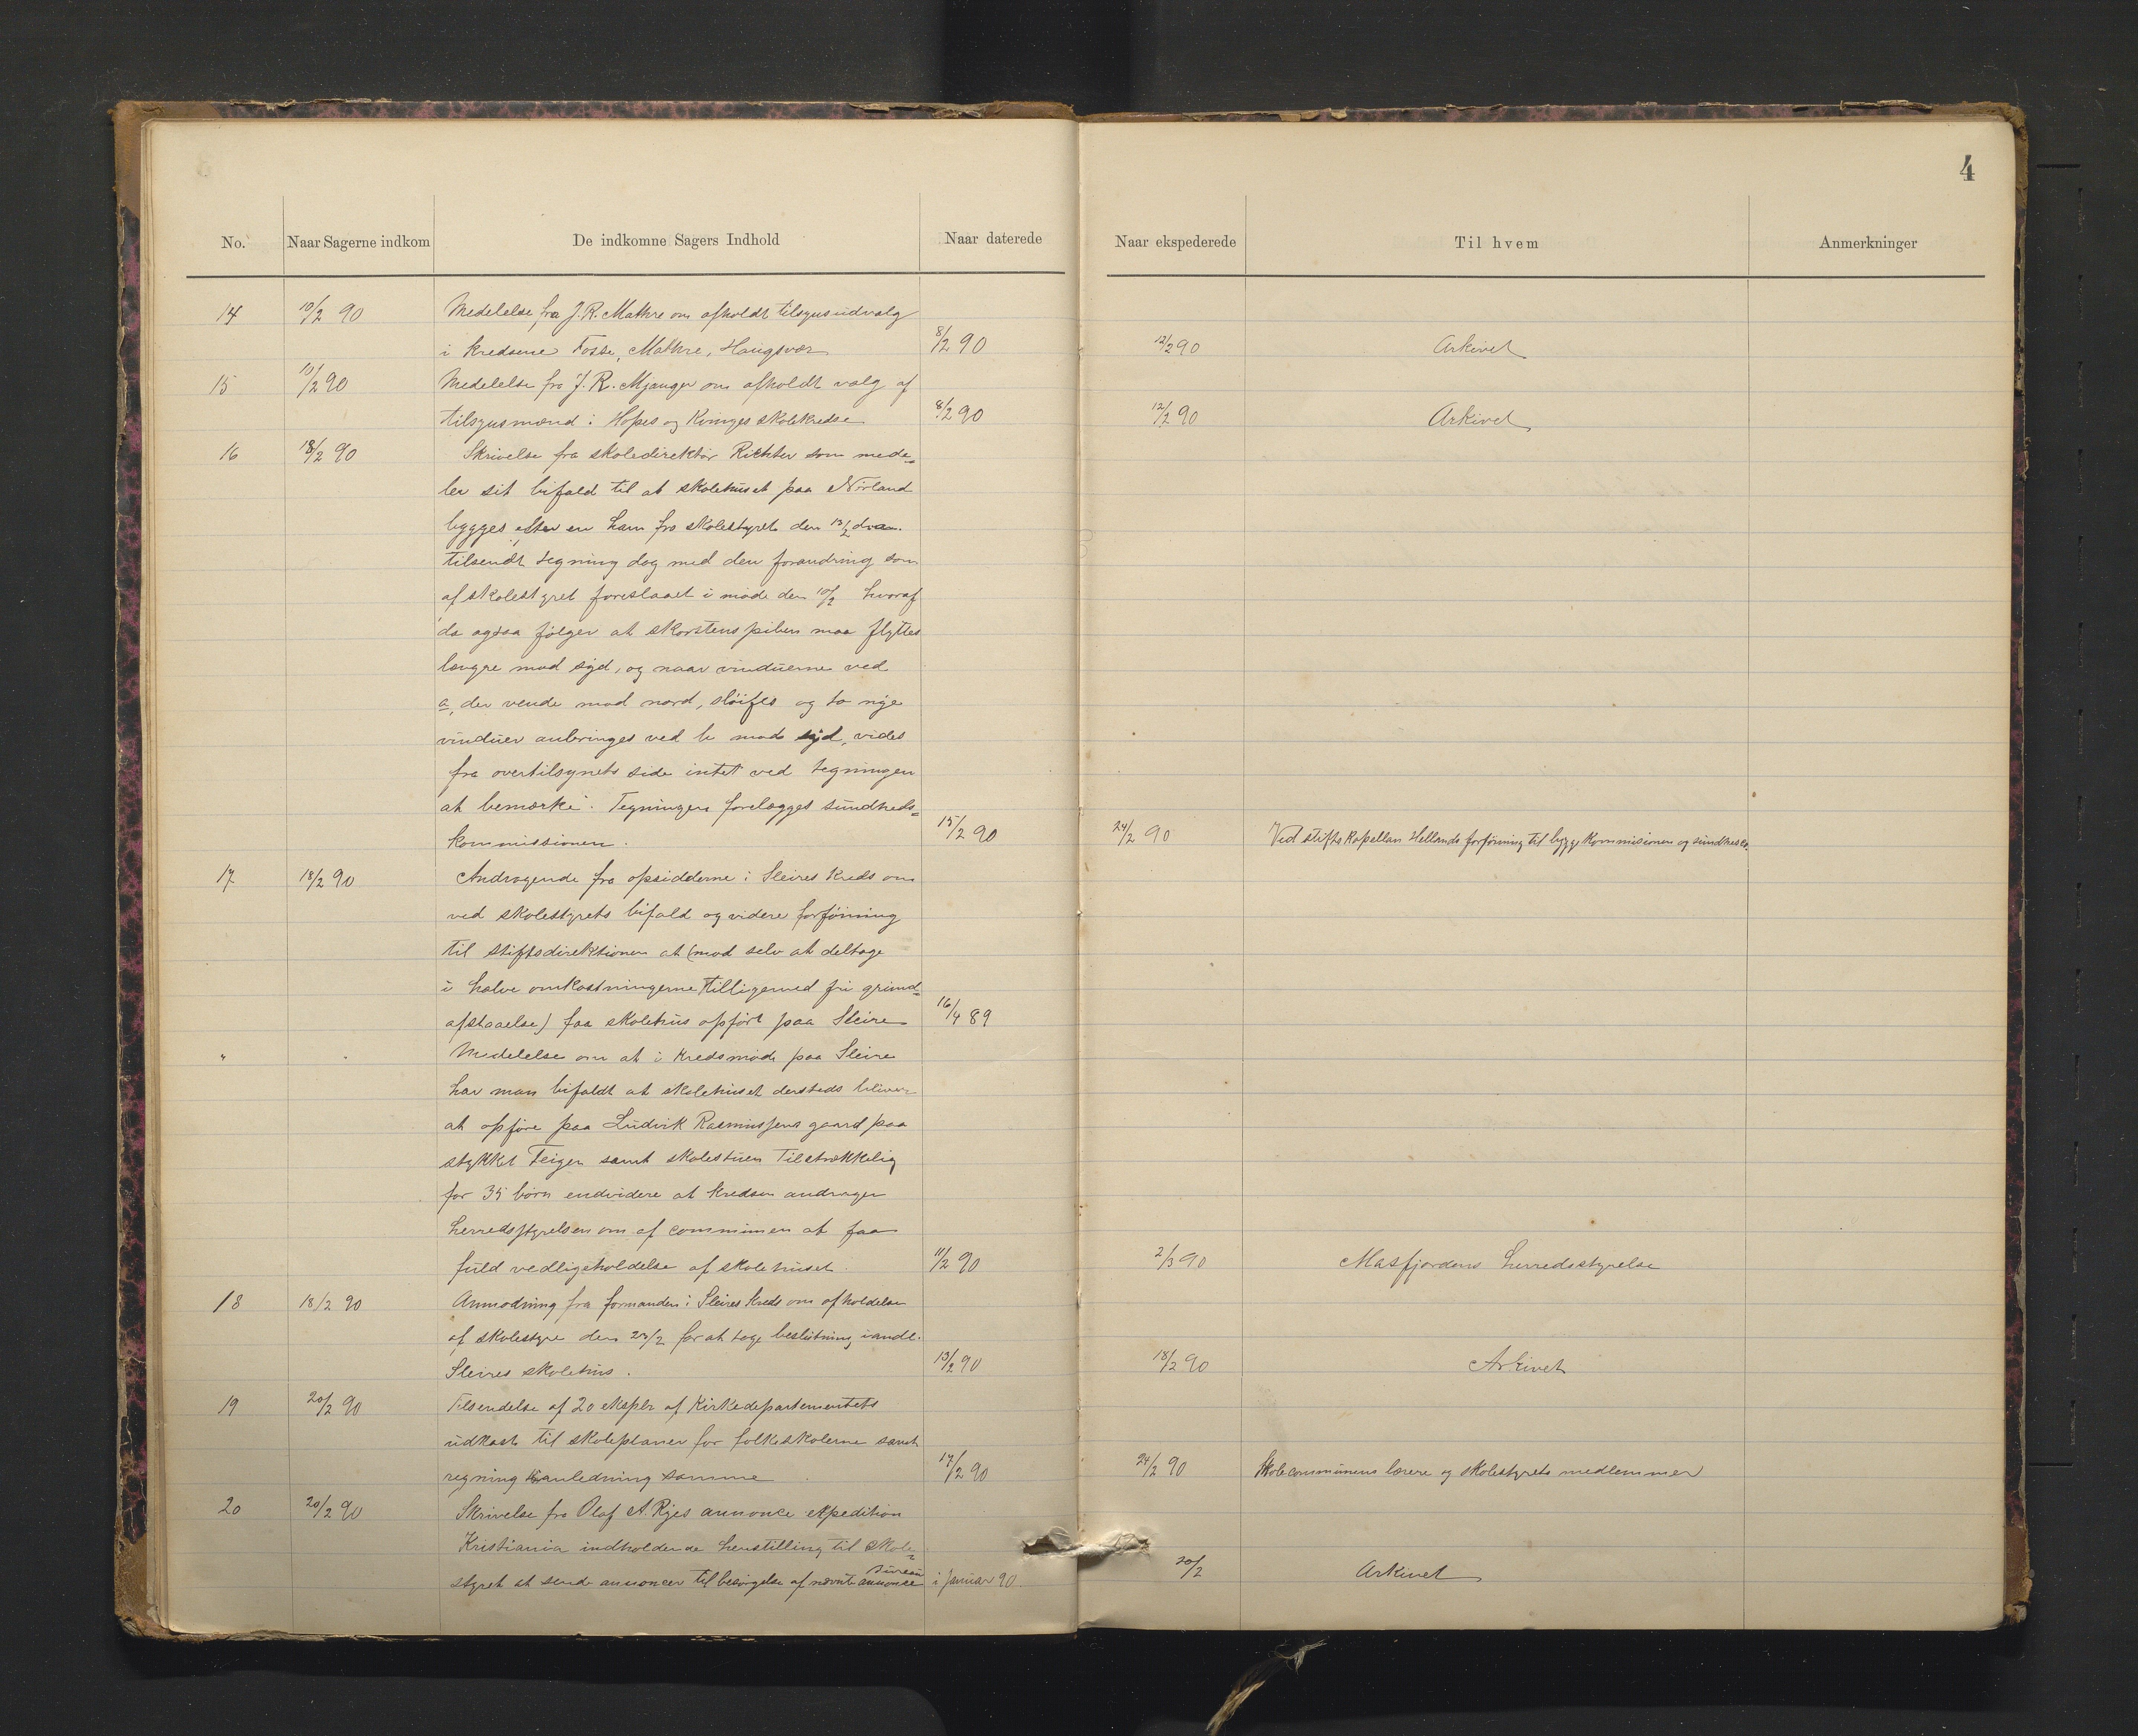 4
No. Naar Sagerne indkom De indkomne Sagers Indhold Naar daterede Naar ekspederede Til hvem Anmerkninger
14 10/2 90 Medelelse fra J. R. Mathre om afholdt tilsynsudvalg
i kredsene Fosse, Mathre, Haugsvær 8/2 90 12/2 90 Arkivet
15 10/2 90 Medelelse fra J. R. Mjanger om afholdt valg af
tilsynsmænd i Hopes og Kvinges skolekredse 8/2 90 12/2 90 Arkivet
16 18/2 90 Skrivelse fra skoledirektør Richter som mede-
ler sit bifald til at skolehuset paa Nórland
bygges efter en ham fra skolestyret den 13/2 d.a.
tilsendt tegning dog med den forandring som
af skolestyret foreslaaet i møde den 10/2 hvoraf
da ogsaa følger at skorstenspiben maa flyttes
længre mod syd, og naar vinduerne ved
a, der vende mod nord, sløifes og to nye
vinduer anbringes ved b mod syd, vides
fra overtilsynets side intet ved tegningen
at bemærke. Tegningen forelægges sundheds-
kommissionen. 15/2 90 24/2 90 Ved stiftskapellan Hellands forføining til byggekommisionen og sundheds
17 18/2 90 Andragende fra opsidderne i Sleires kreds om
ved skolestyrets bifald og videre forføining
til stiftsdirektionen at (mod selv at deltage
i halve omkostningerne tilligemed fri grund-
afstaaelse) faa skolehus opført paa Sleire 16/4 89
" " Medelelse om at i kredsmøde paa Sleire
har man bifaldt at skolehuset dersteds bliver
at opføre paa Ludvik Rasmussens gaard paa
stykket Teigen samt skolestuen tilstrækkelig
for 35 børn endvidere at kredsen andrager
herredsstyrelsen om af communen at faa
fuld vedligeholdelse af skolehuset. 11/2 90 2/3 90 Masfjordens herredsstyrelse
18 18/2 90 Anmodning fra formanden i Sleires kreds om afholdelse
af skolestyre den 24/2 for at tage beslutning i andl.
Sleires skolehus. 13/2 90 18/2 90 Arkivet
19 20/2 90 Tilsendelse af 20 eksplr af Kirkedepartementets
udkast til skoleplaner for folkeskolerne samt
regning i anledning samme 17/2 90 24/2 90 Skolecommunens lærere og skolestyrets medlemmer
20 20/2 90 Skrivelse fra Olaf A. Ryes annonce expedition
Kristiania indholdende henstilling til skole-
styret at sende annoncer til besørgelse af nævnte annonce bureau i Januar 90. 20/2 Arkivet